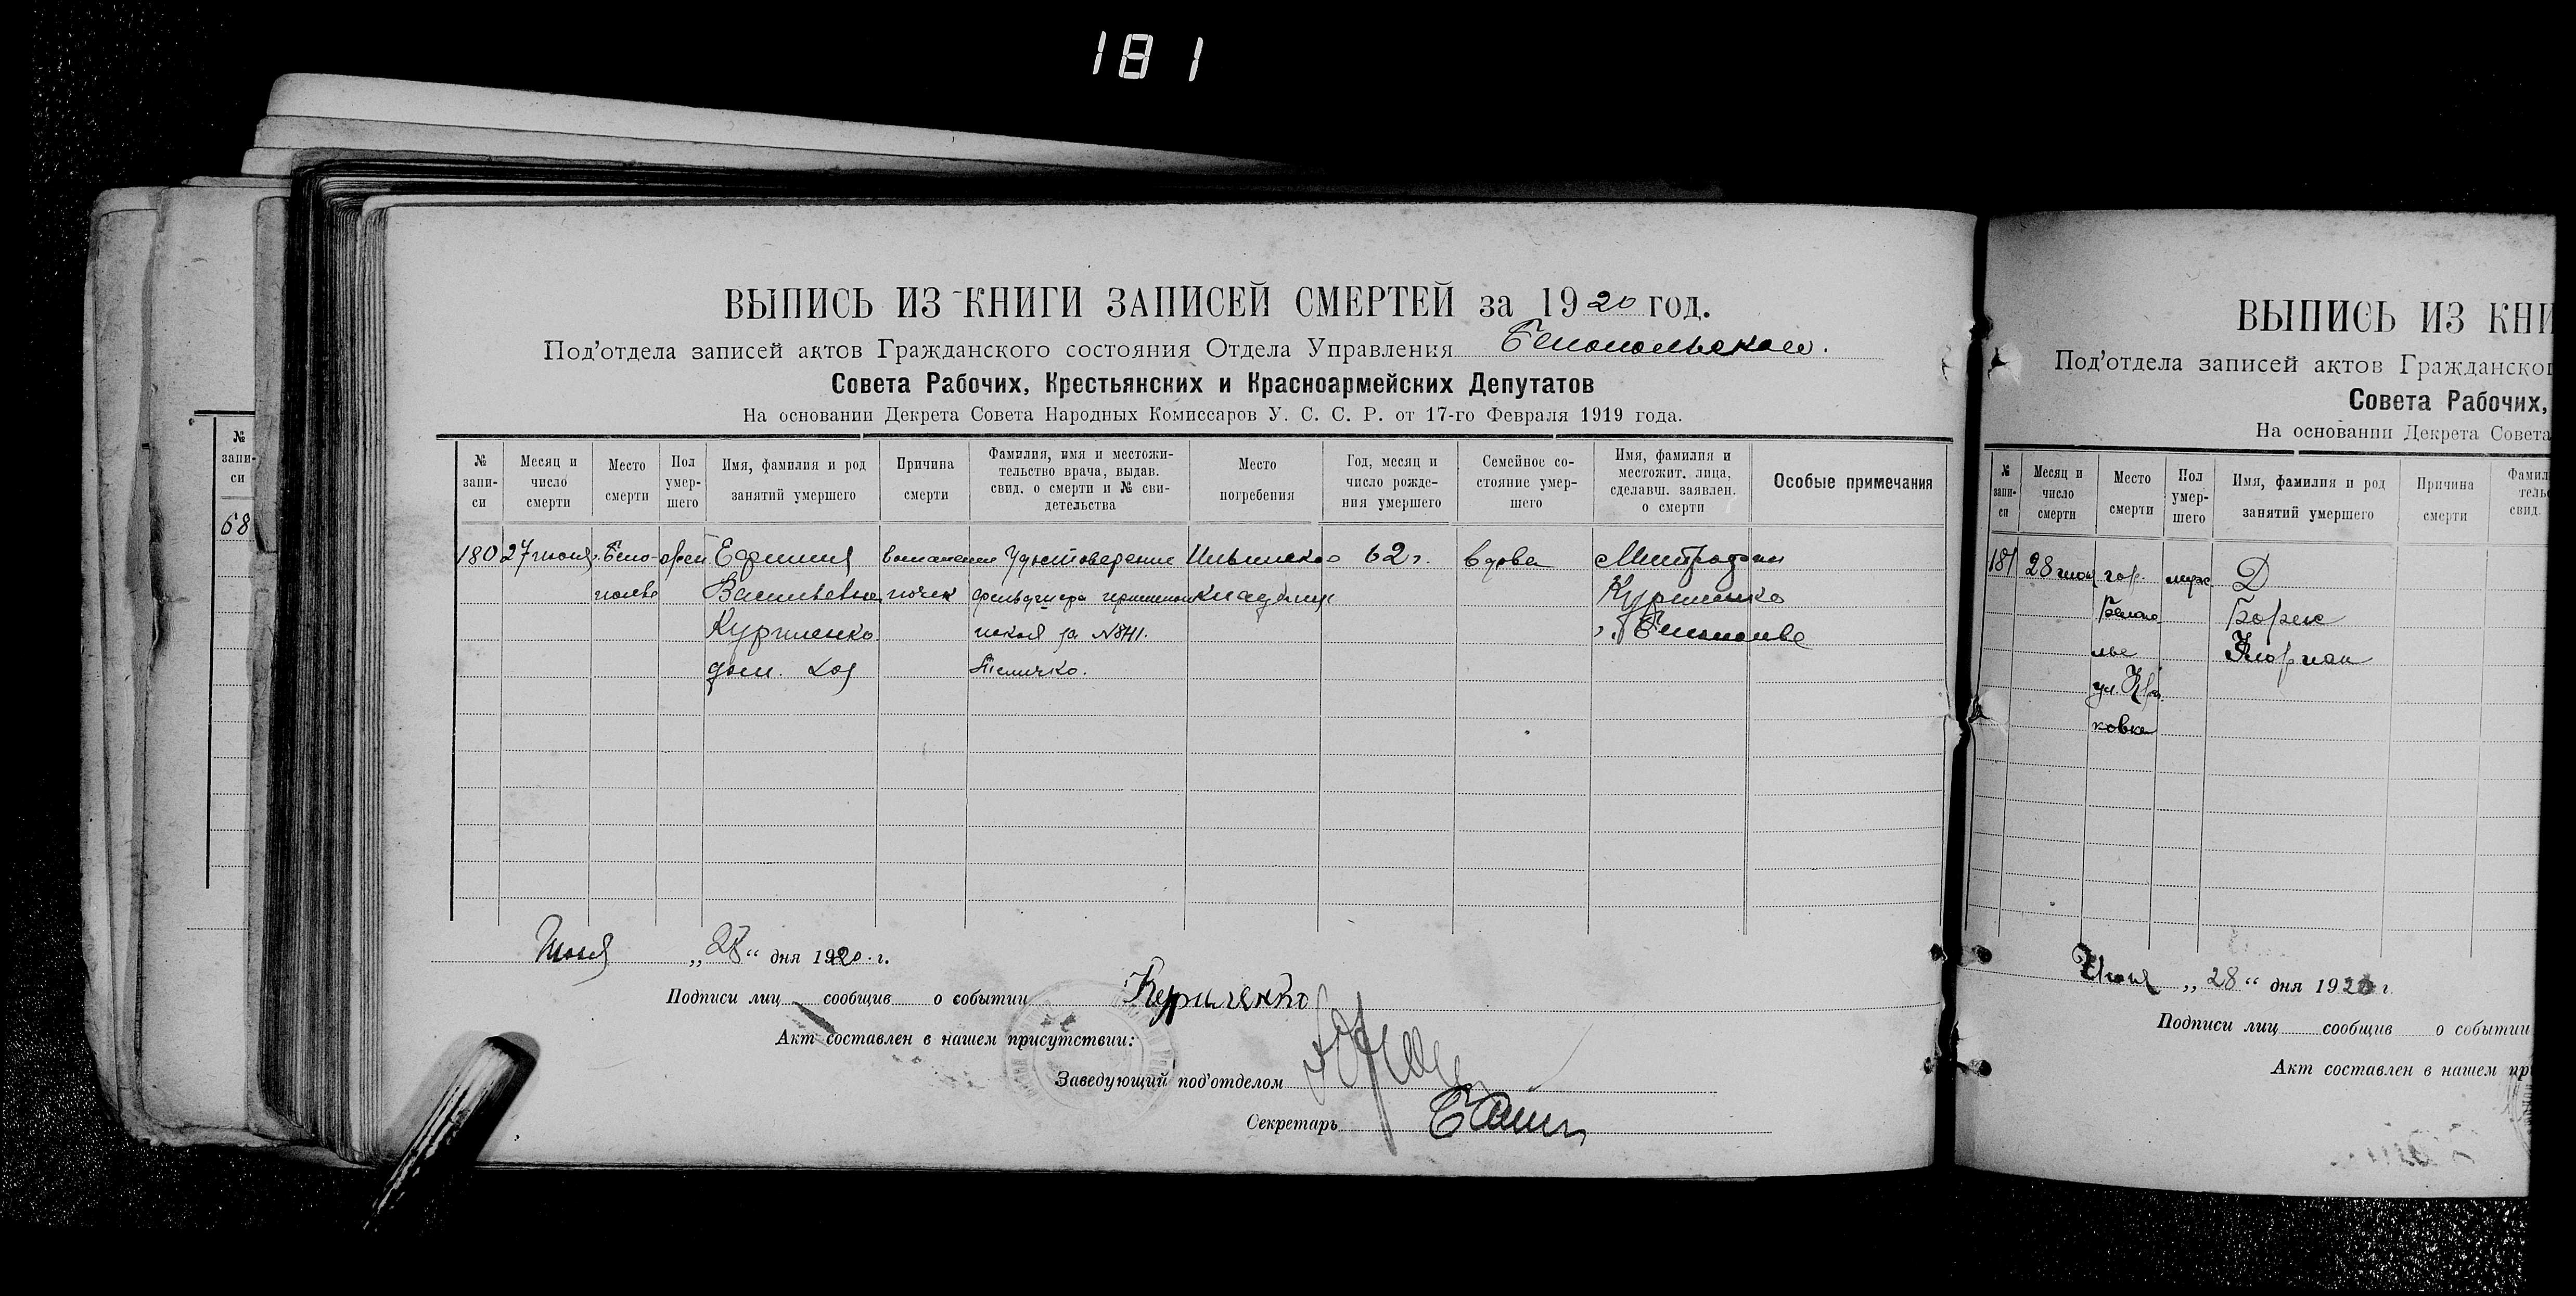 181
ВЫПИСЬ ИЗ КНИГИ ЗАПИСЕЙ СМЕРТЕЙ за 1920 год.
Под'отдела записей актов Гражданского состояния Отдела Управления Белопольского.
Совета Рабочих, Крестьянских и Красноармейских Депутатов
На основании Декрета Совета Народных Комиссаров У. С. С. Р. от 17-го Февраля 1919 года.
№ запи-си
Месяц и число смерти
Место смерти
Пол умер-шего
Имя, фамилия и род занятий умершего
Причина смерти
Фамилия, имя и местожи-тельство врача, выдав. свид. о смерти и № сви-детельства
Место погребения
Год, месяц и число рожде-ния умершего
Семейное со-стояние умер-шего
Имя, фамилия и местожит. лица, сделавш. заявлен. о смерти
Особые примечания
180
27 июня
Бело-
полье
жен
Ефимия
Васильевна
Куриленко
дом. хоз
воспаление
почек
Удостоверение
фельдшера приемного
покоя за №841.
Ильинское
кладбище
62 г.
вдова
Митрофан
Куриленко
г. Белополье
Июня „28“ дня 1920 г.
Подписи лиц сообщив о событии Куриленко
Акт составлен в нашем присутствии:
Заведующий под'отделом
Секретарь
№ запи-си
68
ВЫПИСЬ ИЗ КНИ
Под'отдела записей актов Гражданског
Совета Рабочих,
На основании Декрета Совета
№ запи-си
Месяц и число смерти
Место смерти
Пол умер-шего
Имя, фамилия и род занятий умершего
Причина смерти
Фамил
тель
свид.
181
28 июн
гор.
Белопо
лье
ул.
ковка
муж
Д
Июня „28“ дня 1920 г.
Подписи лиц сообщив о событии
Акт составлен в нашем пр